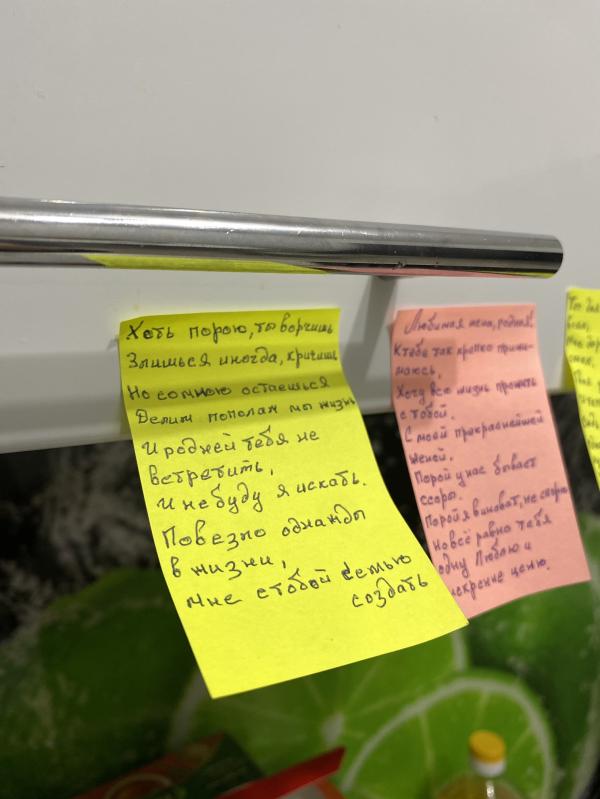 Хоть порою, ты ворчишь
Злишься иногда, кричишь
Но со мною остаешься
Делим пополам мы жизнь
И родней тебя не
встретить,
И не буду я искать.
Повезло однажды
в жизни,
Мне с тобой семью
создать
Любимая жена, родная!
К тебе так крепко прижи-
маюсь,
Хочу всю жизнь прожить
с тобой.
С моей прекраснейшей
женой.
Порой у нас бывает
ссоры.
Порой я виноват, не спорю
Но всё равно тебя
одну Люблю и
искренне ценю.